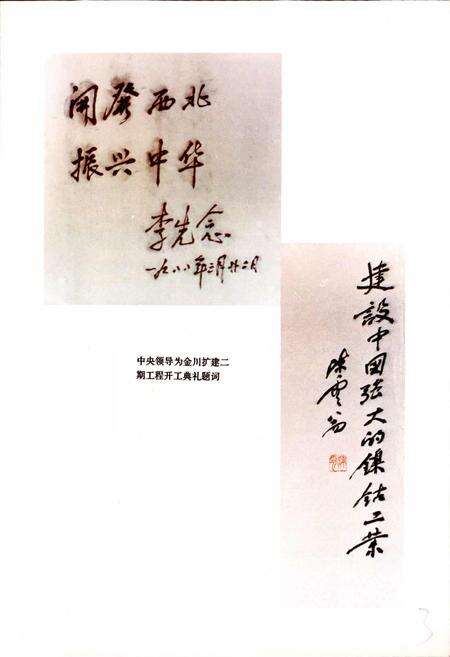 開發西北
振兴中华
李先念
一九八八年三月廿二日
中央领导为金川扩建二
期工程开工典礼题词
建設中国强大的镍钴工業
陈雲
3